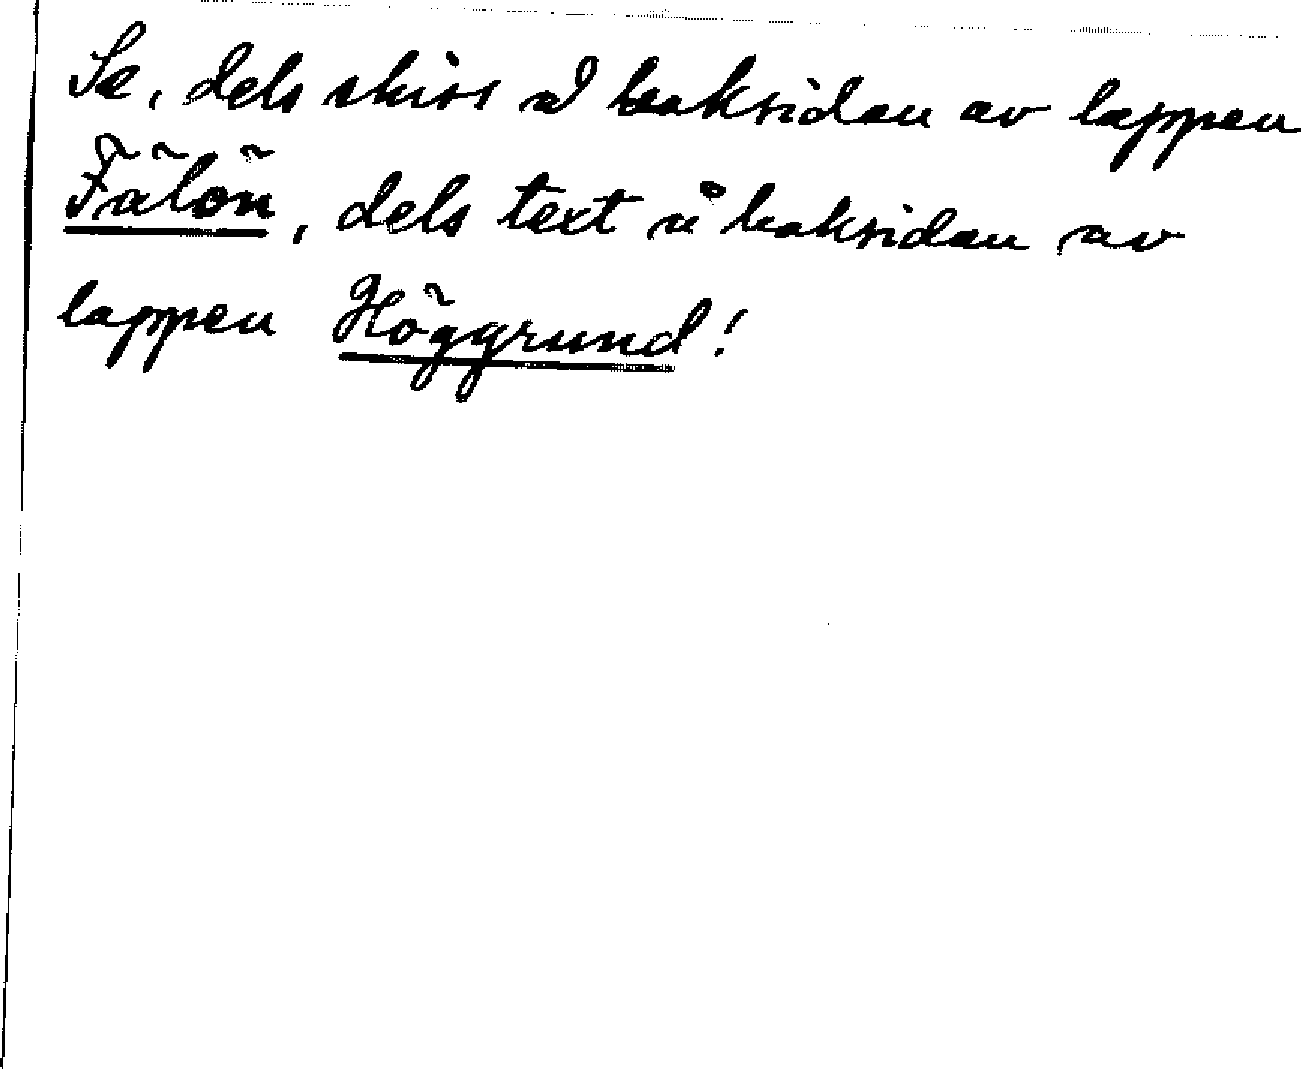 Se, dels skiss å baksidan av lappen
Fälön, dels text å baksidan av
lappen Höggrund!